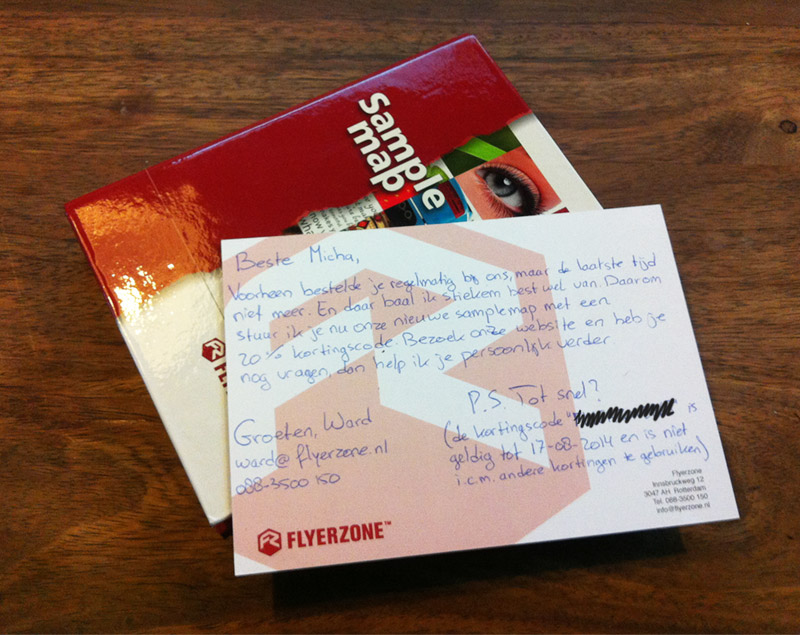 Sample
map
Beste Micha,
Voorheen bestelde je regelmatig bij ons, maar de laatste tijd
niet meer. En daar baal ik stiekem best wel van. Daarom
stuur ik je nu onze nieuwe samplemap met een
20% kortingscode. Bezoek onze website en heb je
nog vragen, dan help ik je persoonlijk verder.
P.S. Tot snel?
(de kortingscode " " is
geldig tot 17-08-2014 en is niet
i.c.m. andere kortingen te gebruiken)
Groeten, Ward
ward@flyerzone.nl
088-3500 150
FLYERZONE™
Flyerzone
Innsbruckweg 12
3047 AH Rotterdam
Tel. 088-3500 150
info@flyerzone.nl